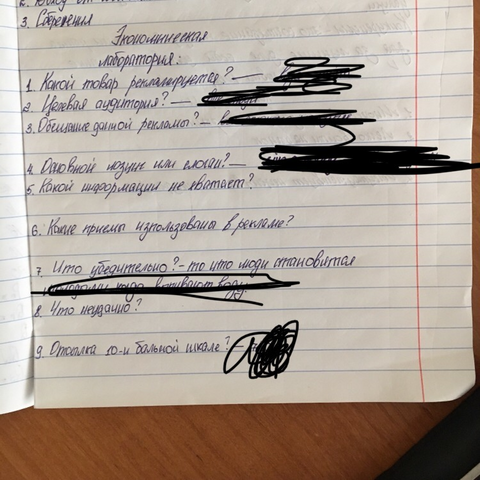 3. Сбережения
Экономическая
лаборатория:
1. Какой товар рекламируется? —
2. Целевая аудитория? —
3. Обещание данной рекламы? —
4. Основной лозунг или слоган? —
5. Какой информации не хватает?
6. Какие приемы использованы в рекламе?
7. Что убедительно? - то что люди становится
8. Что неудачно?
9. 10-и бальной шкале?